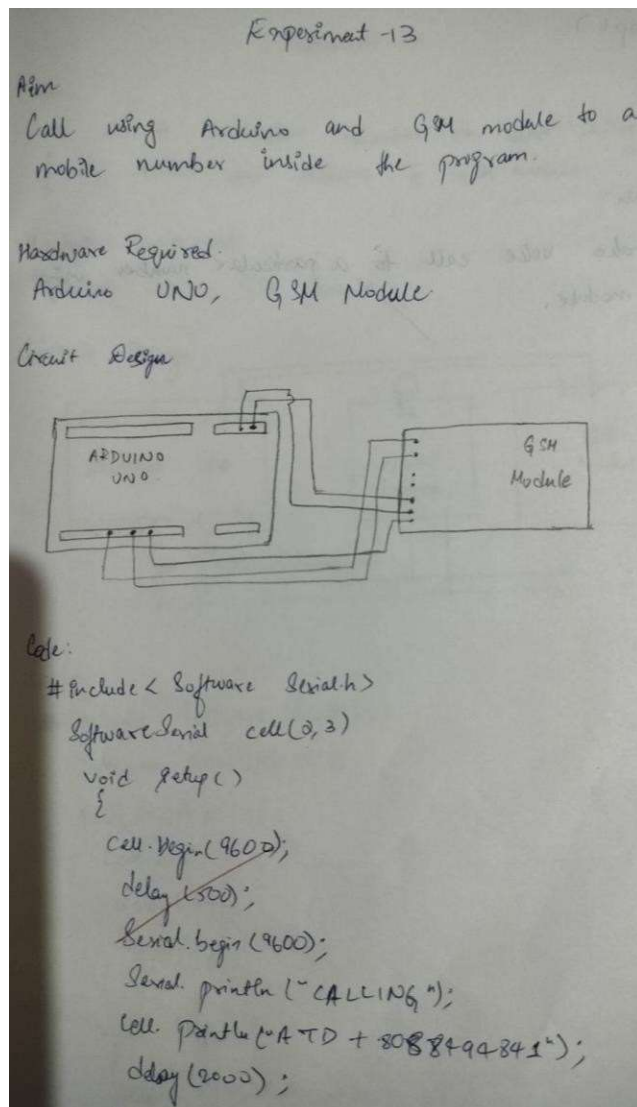 Experiment -13
Aim
Call using Arduino and GSM module to a
mobile number inside the program.
Hardware Required.
Arduino UNO, GSM Module
Circuit Design
ARDUINO
UNO
GSM
Module
Code:
#include < Software Serial.h>
Software Serial cell(2,3)
void setup()
{
cell.begin(9600);
delay (500);
Serial.begin(9600);
Serial. println ("CALLING");
cell. println ("ATD +
delay (2000);